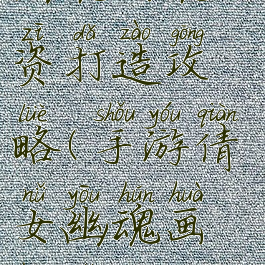 zī dǎ zào gōng
资打造攻
lüè shǒu yóu qiàn
略(手游倩
nǚ yōu hún huà
女幽魂画